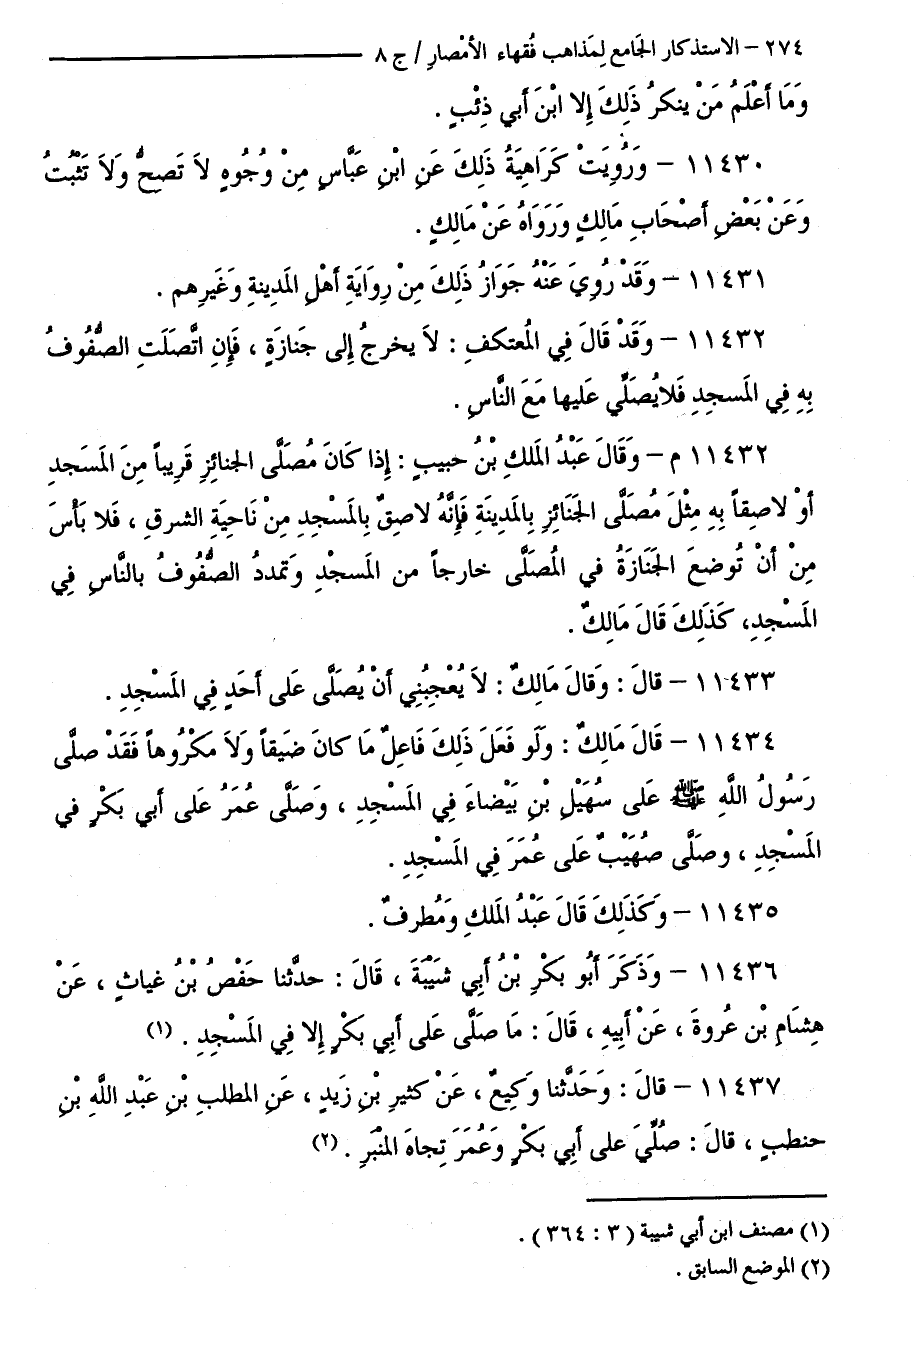 ٢٧٤ – الاستذكار الجَامع لِمَذاهب فُقهاء الأمْصارِ / ج ٨
وَمَا أَعْلَمُ مَنْ ينكرُ ذَلِكَ إِلا ابْنَ أَبي ذِئْبٍ .
١١٤٣٠ – وَرُوِيَتْ كَرَاهِيَةُ ذَلِكَ عَنِ ابْنِ عَبَّاسٍ مِنْ وُجُوهٍ لاَ تَصحُّ وَلاَ تَثْبُتُ
وَعَنْ بَعْضِ أَصْحَابِ مَالِكٍ وَرَوَاهُ عَنْ مَالِكٍ .
١١٤٣١ – وَقَدْ رُوِيَ عَنْهُ جَوَازُ ذَلِكَ مِنْ رِوَايَةِ أَهْلِ المَدِينةِ وَغَيرِهم .
١١٤٣٢ – وَقَدْ قَالَ فِي المُعتكفِ : لاَ يخرجُ إِلى جَنازَةٍ ، فَإِنِ اتَّصَلَتِ الصُّفُوفُ
بِهِ فِي المَسجدِ فَلايُصَلِّي عَليها مَعَ النَّاسِ .
١١٤٣٢ م – وَقَالَ عَبْدُ المَلكِ بْنُ حبيبٍ : إِذا كَانَ مُصَلَّى الجنائزِ قَرِيباً مِنَ المَسَجدِ
أوْ لاصِقاً بِهِ مِثْلَ مُصَلَّى الجَنَائزِ بِالمَدِينَةِ فَإِنَّهُ لاصِقٌ بِالمَسْجِدِ مِنْ نَاحِيَةِ الشرقِ ، فَلا بَأْسَ
مِنْ أَنْ تُوضعَ الجَنَازَةُ في المُصَلَّى خارجاً من المَسجدِ وَتمددُ الصُّفُوفُ بالنَّاسِ فِي
المَسْجِدِ، كَذَلِكَ قَالَ مَالِكٌ .
١١٤٣٣ – قالَ : وَقالَ مَالكٌ : لاَ يُعْجِبُنِي أَنْ يُصَلَّى عَلى أَحَدٍ فِي المَسْجِدِ .
١١٤٣٤ – قَالَ مَالِكٌ : وَلَو فَعَلَ ذَلِكَ فَاعِلٌ مَا كانَ ضَيقاً وَلاَ مَكْرُوهاً فَقَدْ صلَّى
رَسُولُ اللَّهِ ﷺ عَلى سُهَيْلِ بْنِ بَيْضاءَ فِي المَسْجدِ ، وَصَلَّى عُمَرُ عَلى أبي بَكْرٍ في
المَسْجدِ ، وصَلَّى صُهَيْبٌ عَلى عُمَرَ فِي المَسْجِدِ .
١١٤٣٥ – وَكَذَلِكَ قَالَ عَبْدُ المَلكِ وَمُطرفٌ .
١١٤٣٦ – وَذَكَرَ أَبُو بَكْرِ بْنُ أَبِي شَيْبَةَ ، قَالَ : حدَّثنا حَفْصُ بْنُ غياثٍ ، عَنْ
هِشَامِ بْنِ عُروةَ ، عَنْ أَبِيهِ ، قَالَ : مَا صَلَّى عَلى أَبِي بَكْرٍ إِلا فِي المَسْجِدِ . (١)
١١٤٣٧ – قالَ : وَحَدَّثنا وَكِيعٌ ، عَنْ كثيرِ بْنِ زَيدٍ ، عَنِ المطلبِ بْنِ عَبْدِ اللَّهِ بْنِ
حنطبٍ ، قالَ : صُلِّيَ على أَبِي بَكْرٍ وَعُمَرَ تِجاهَ المنْبَرِ . (٢)
(١) مصنف ابن أبي شيبة ( ٣ : ٣٦٤ ) .
(٢) الموضع السابق .